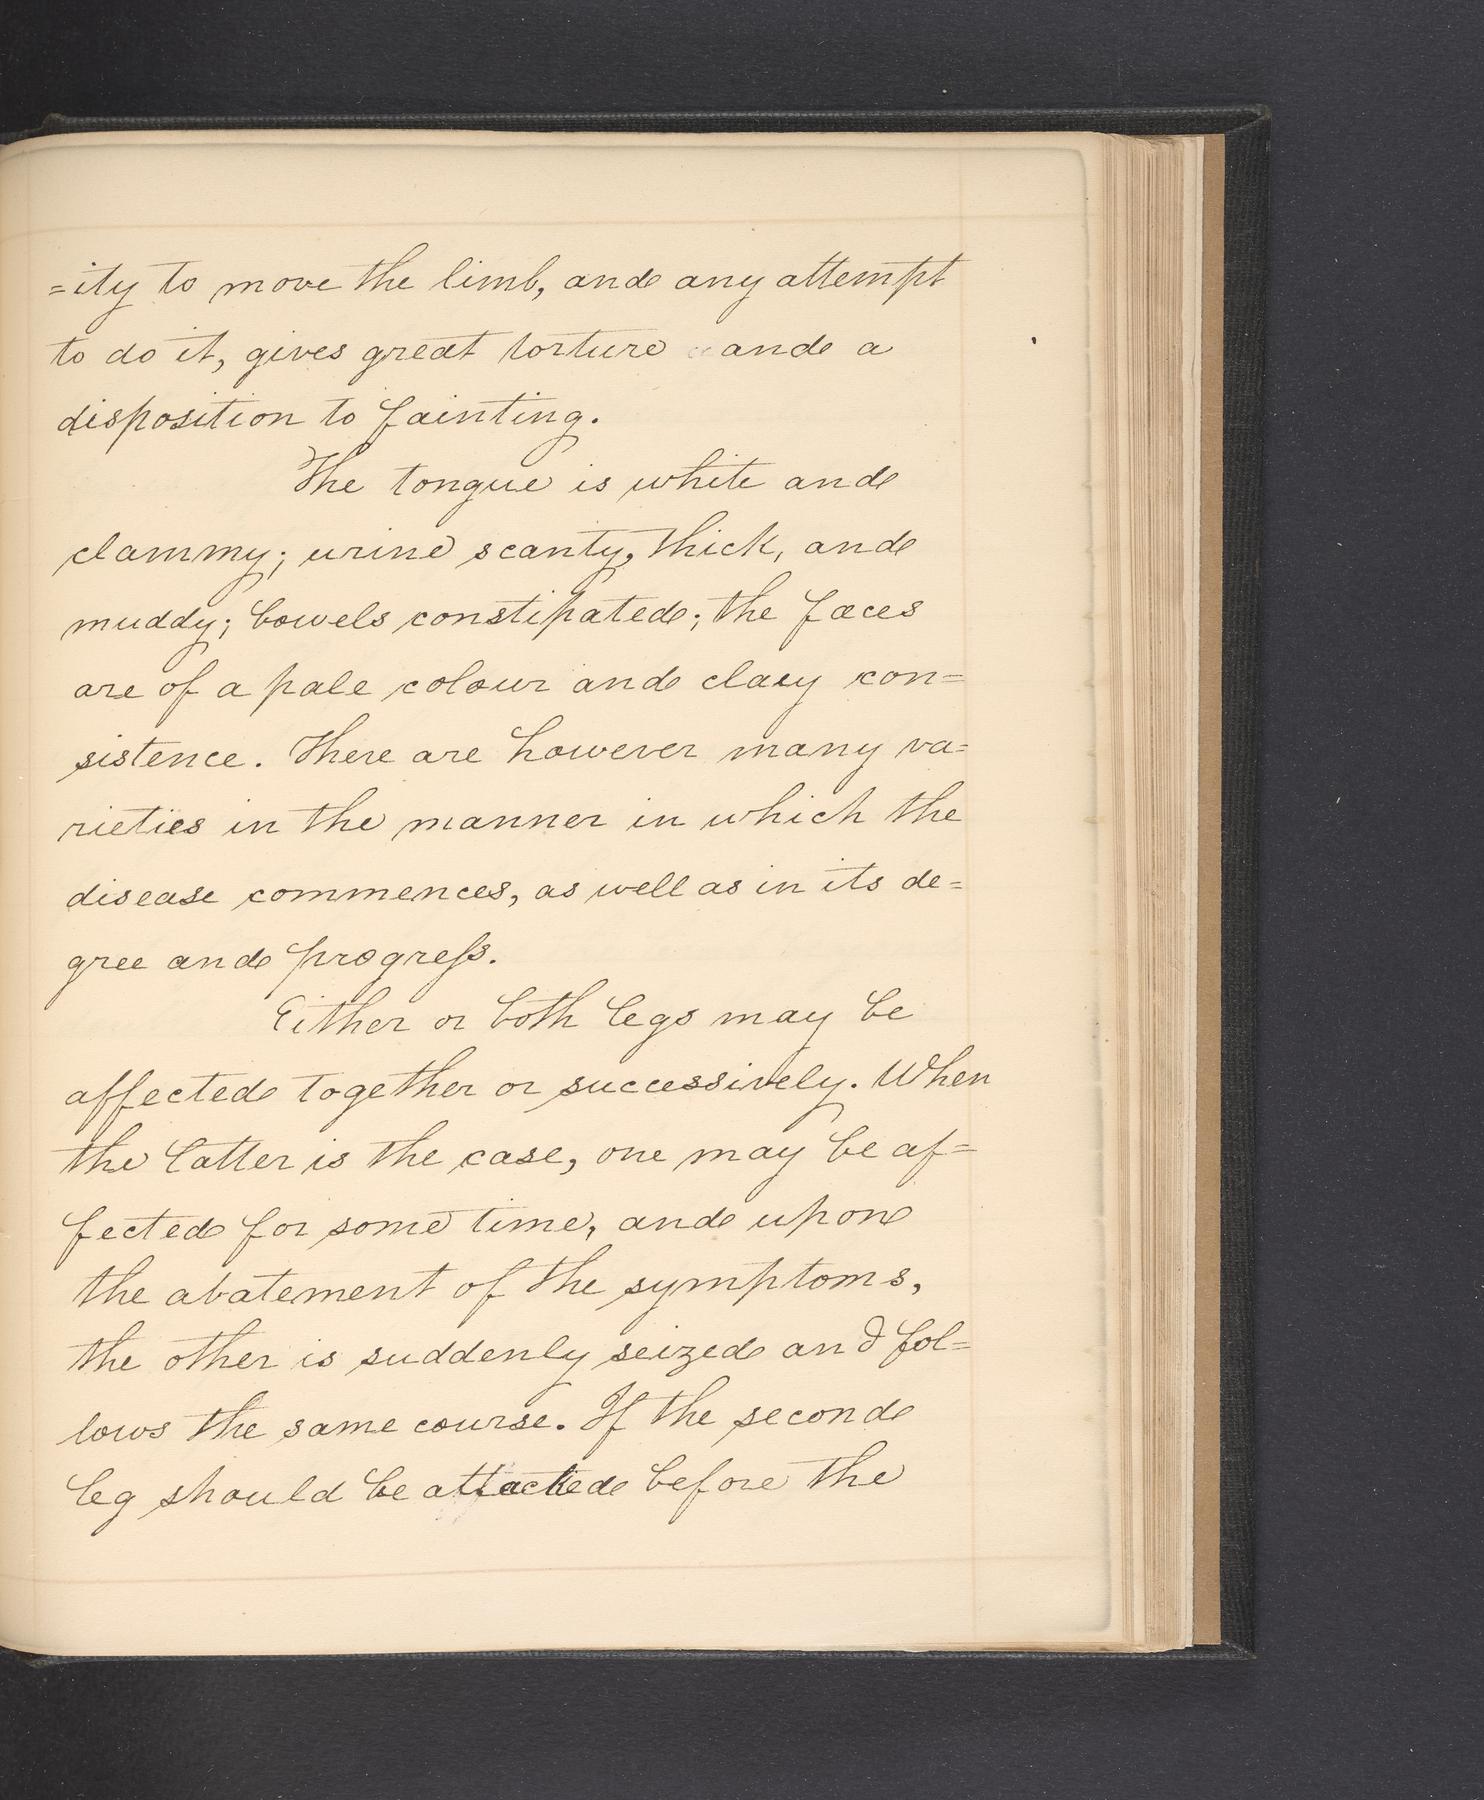 =ity to move the limb, and any attempt
to do it, gives great torture and a
disposition to fainting.
The tongue is white and
clammy; urine scanty, thick, and
muddy; bowels constipated; the fæces
are of a pale colour and claey con=
sistence. There are however many va=
rieties in the manner in which the
disease commences, as well as in its de=
gree and progreſs.
Either or both legs may be
affected together or successively. When
the latter is the case, one may be af=
fected for some time, and upon
the abatement of the symptoms,
the other is suddenly seized and fol=
lows the same course. If the second
leg should be attacked before the